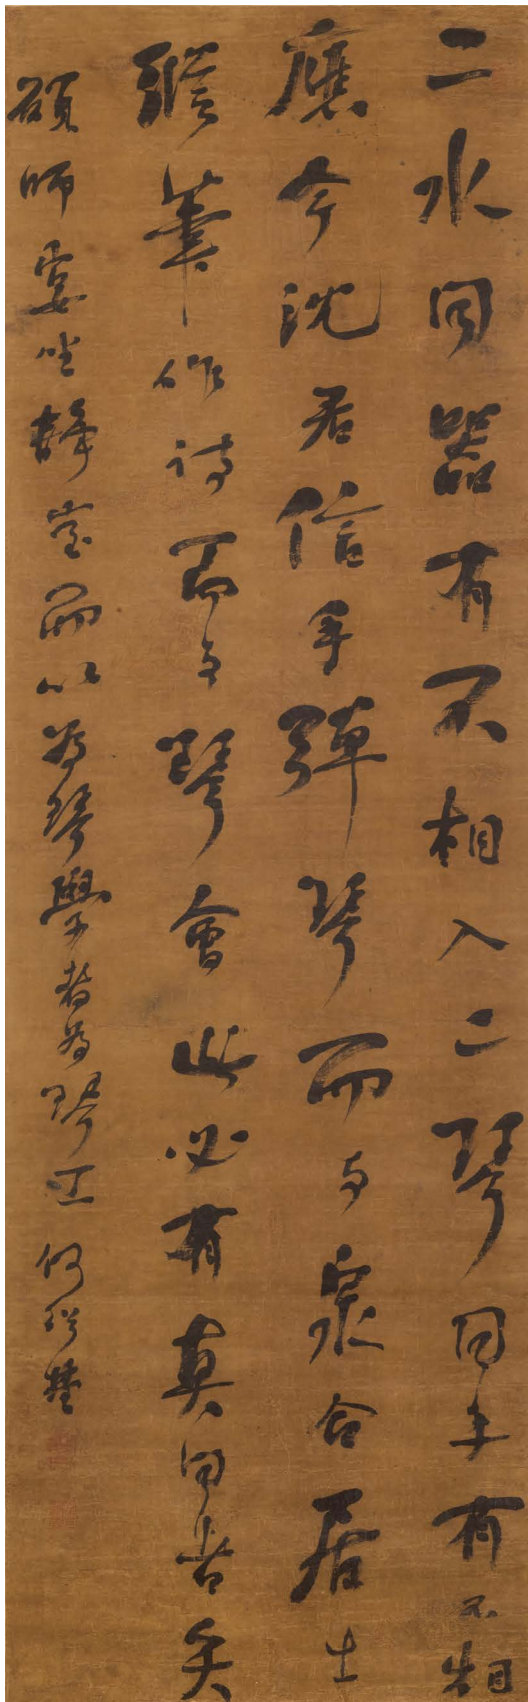 二水同器有不相入二琴同手有不相
應今沈君信手彈琴而與泉合居士
縱筆作詩而與琴會此必有真同者矣
願師宴坐靜室而以為琴學者為琴工 何